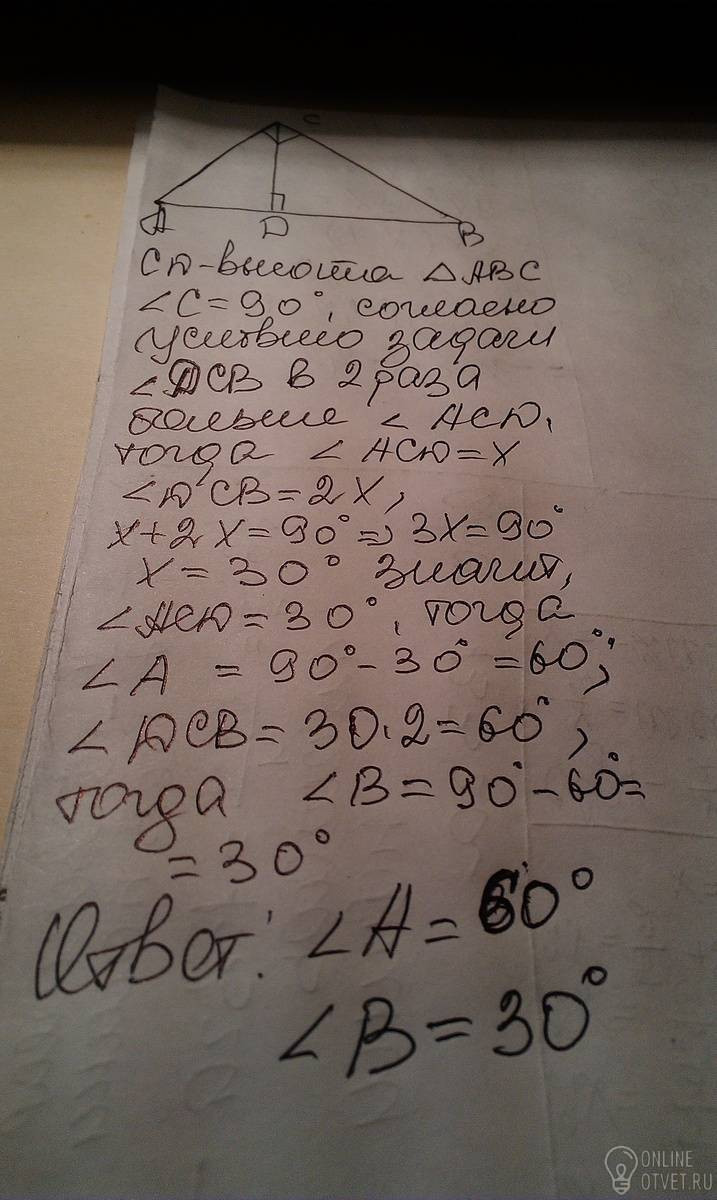 C
A
D
B
СD-высота △ABC
∠C=90°, согласно
условию задачи
∠DCB в 2 раза
больше ∠ACD,
тогда ∠ACD=x
∠DCB=2x,
x+2x=90°⇒3x=90°
x=30° значит,
∠ACD=30°, тогда
∠A = 90°-30°=60°;
∠DCB=30·2=60°,
тогда ∠B=90°-60°=
=30°
Ответ: ∠A=60°
∠B=30°
ONLINE
OTVET.RU